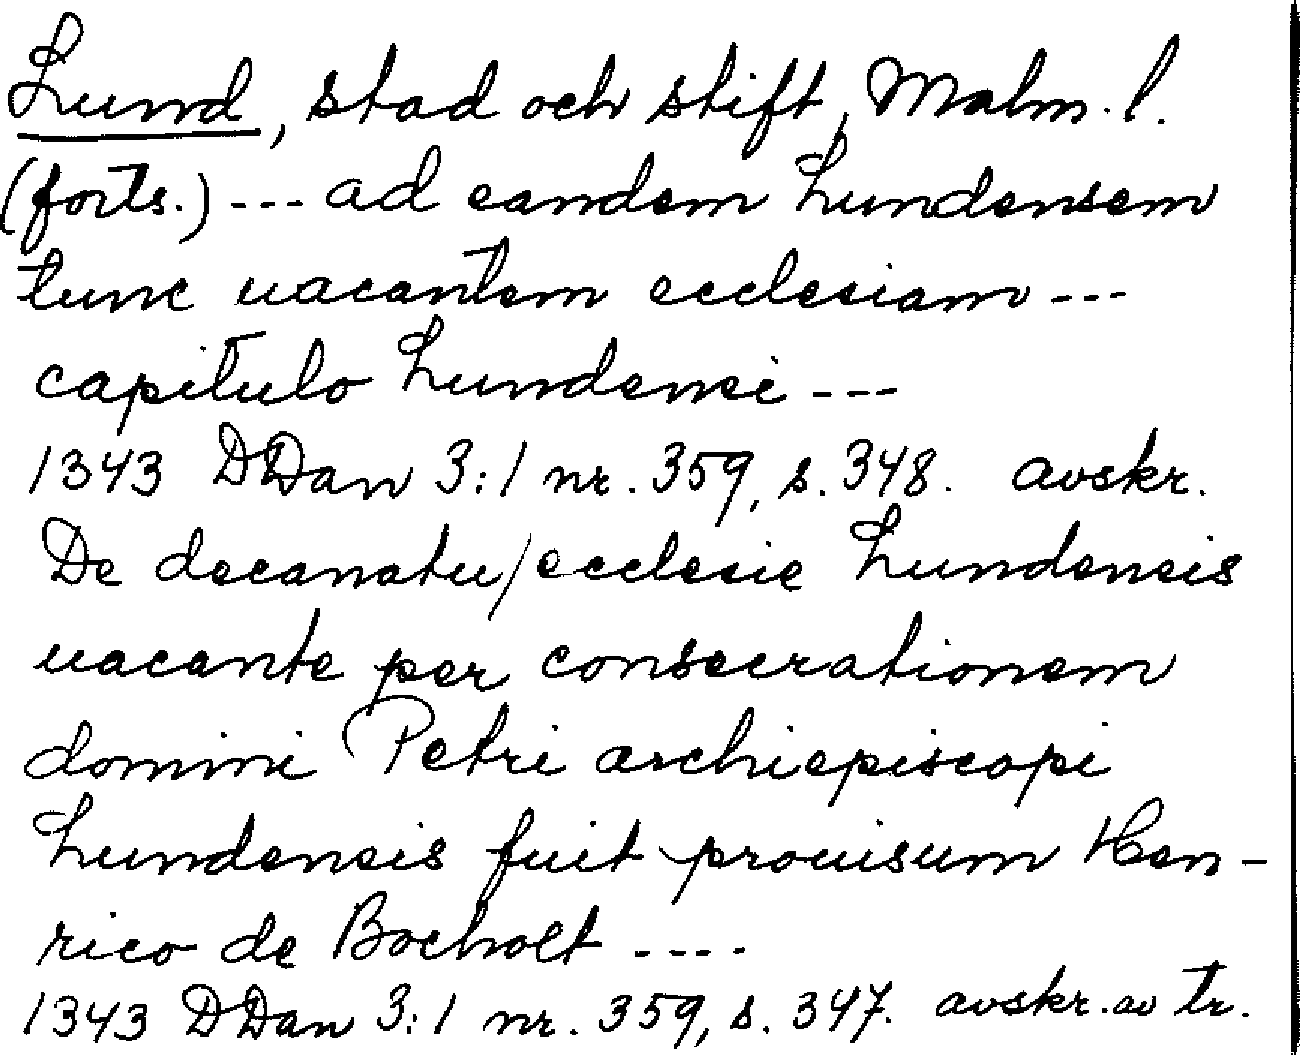 Lund, stad och stift, Malm. l.
(forts.) --- ad eandem Lundensem
tunc uacantem ecclesiam ---
capitulo Lundensi ---
1343 DDan 3:1 nr. 359, s. 348. avskr.
De decanatu/ecclesie Lundensis
uacante per consecrationem
domini Petri archiepiscopi
Lundensis fuit prouisum Hen-
rico de Bocholt ----
1343 DDan 3:1 nr. 359, s. 347. avskr. av tr.